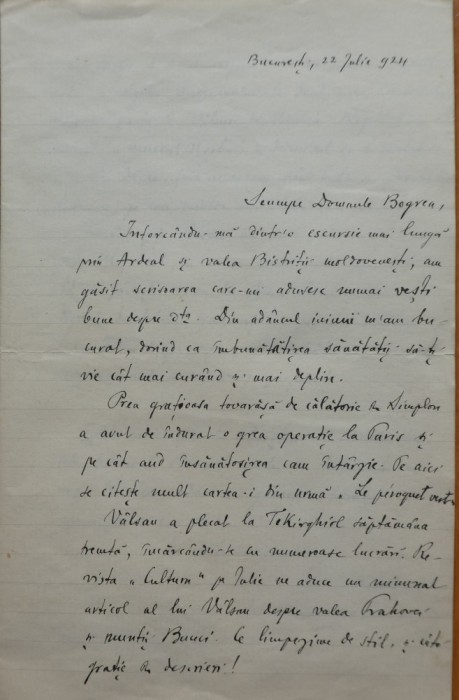 București, 22 Julie 1924
Scumpe Domnule Bogrea,
Întorcându-mă dintr'o escursie mai lungă
prin Ardeal și valea Bistriții moldovenești, am
găsit scrisoarea care-mi aducese numai vești
bune despre Dta. Din adâncul inimii m'am bu-
curat, dorind ca îmbunătățirea sănătății să-ți
vie cât mai curând și mai deplin.
Prea grațioasa tovarășă de călătorie în Simplon
a avut de îndurat o grea operație la Paris și
pe cât aud însănătoșirea cam întârzie. Pe aici
se citește mult cartea-i din urmă „Le perroquet vert"
Vâlsan a plecat la Tekirghiol săptămâna
trecută, încărcându-se cu numeroase lucrări. Re-
vista „Cultura" pe Julie ne aduce un minunat
articol al lui Vâlsan despre valea Prahovei
și munții Bucegi. Ce limpezime de stil, și câtă
grație în descrieri!